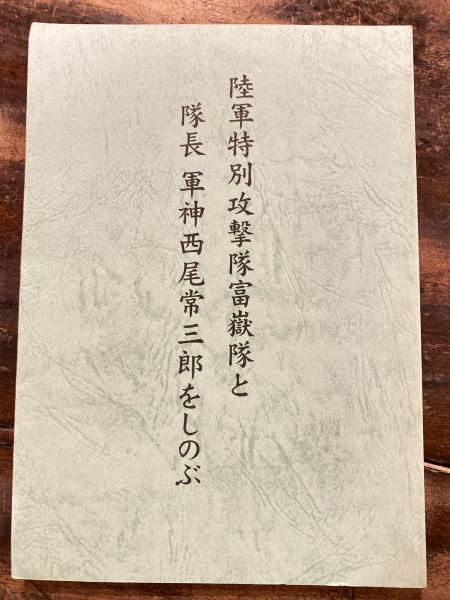 陸軍特別攻撃隊富嶽隊と
隊長 軍神西尾常三郎をしのぶ